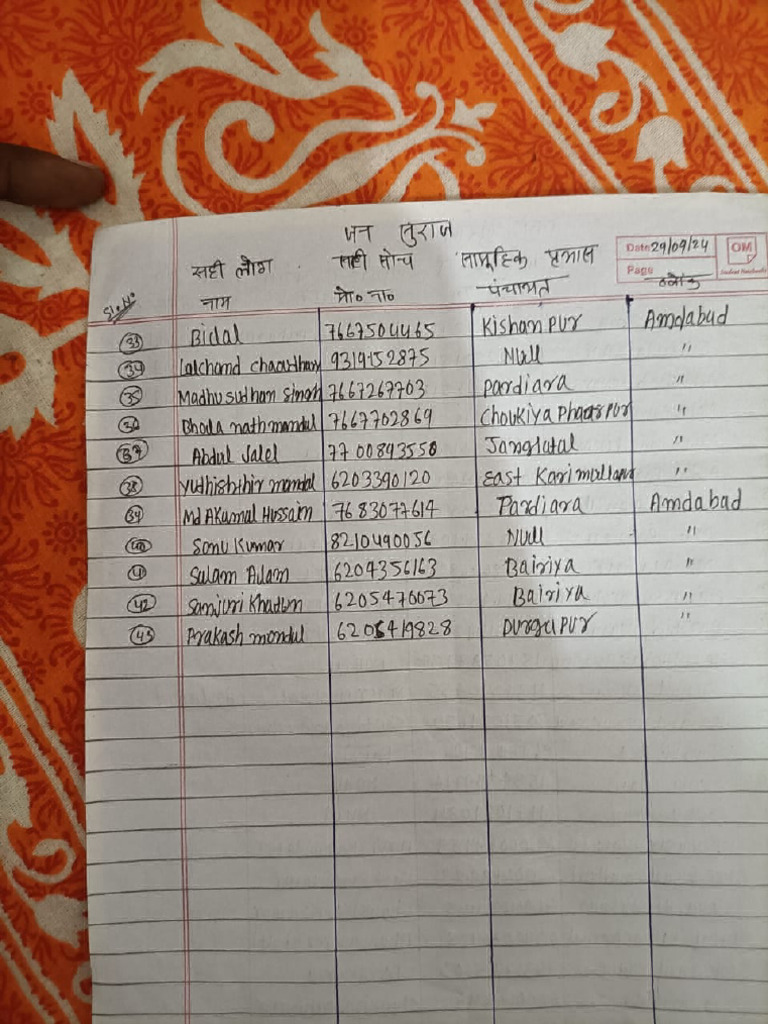 जन सुराज
सही लोग सही सोच सामूहिक प्रयास Date 29/09/24 OM
Page
Sl. No नाम मो० ना० पंचायत ब्लॉक
33 Bidal 7667504465 Kishanpur Amdabad
34 Lalchand chaudhary 9319152875 Null "
35 Madhusudhan Singh 7667267703 Pardiara "
36 Bhola nath mandul 7667702869 Choukiya "
37 Abdul Jalel 7700893550 Janglatal "
38 yudhishthir mandal 6203390120 East Karimullapur "
39 Md Hussain 7683077614 Pardiara Amdabad
40 Sonu Kumar 8210490056 Null "
41 Sulam Alam 6204356163 Bairiya "
42 Sanjuri Khatun 6205470073 Bairiya "
43 Prakash mondul 6205419828 Durgapur "